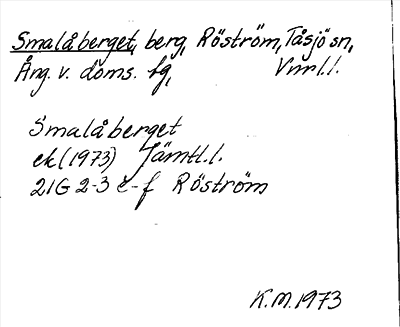 Smalåberget, berg, Röström, Tåsjö sn,
Ång. v. doms. tg, Vnrl.l.
Smalåberget
ek (1973) Jämtl.l.
21G 2-3 e-f Röström
K.M. 1973